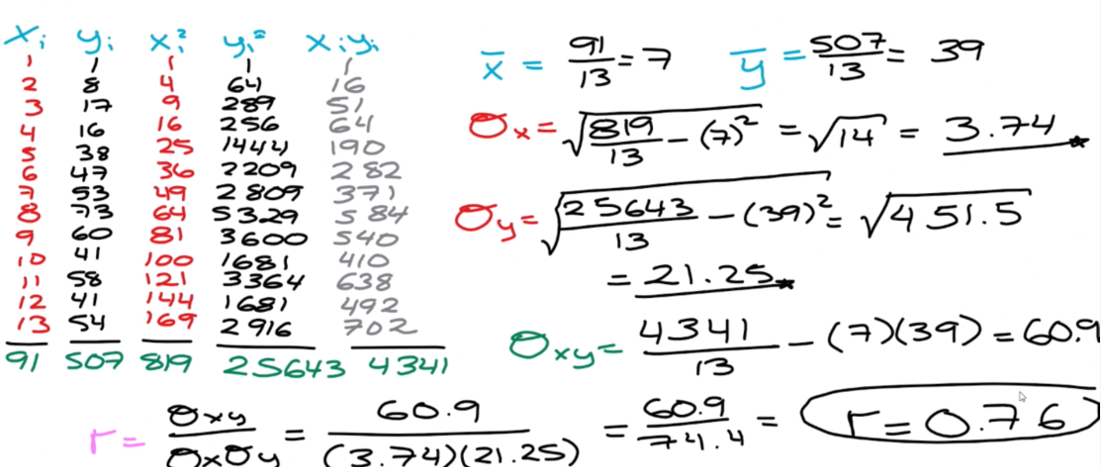 xᵢ yᵢ xᵢ² yᵢ² xᵢyᵢ
1 1 1 1 1
2 8 4 64 16
3 17 9 289 51
4 16 16 256 64
5 38 25 1444 190
6 47 36 2209 282
7 53 49 2809 371
8 73 64 5329 584
9 60 81 3600 540
10 41 100 1681 410
11 58 121 3364 638
12 41 144 1681 492
13 54 169 2916 702
91 507 819 25643 4341
x̄ = 91/13 = 7
ȳ = 507/13 = 39
σx = √(819/13 − (7)²) = √14 = 3.74
σy = √(25643/13 − (39)²) = √451.5
= 21.25
σxy = 4341/13 − (7)(39) = 60.9
r = σxy/σxσy = 60.9/(3.74)(21.25) = 60.9/74.4 = r = 0.76